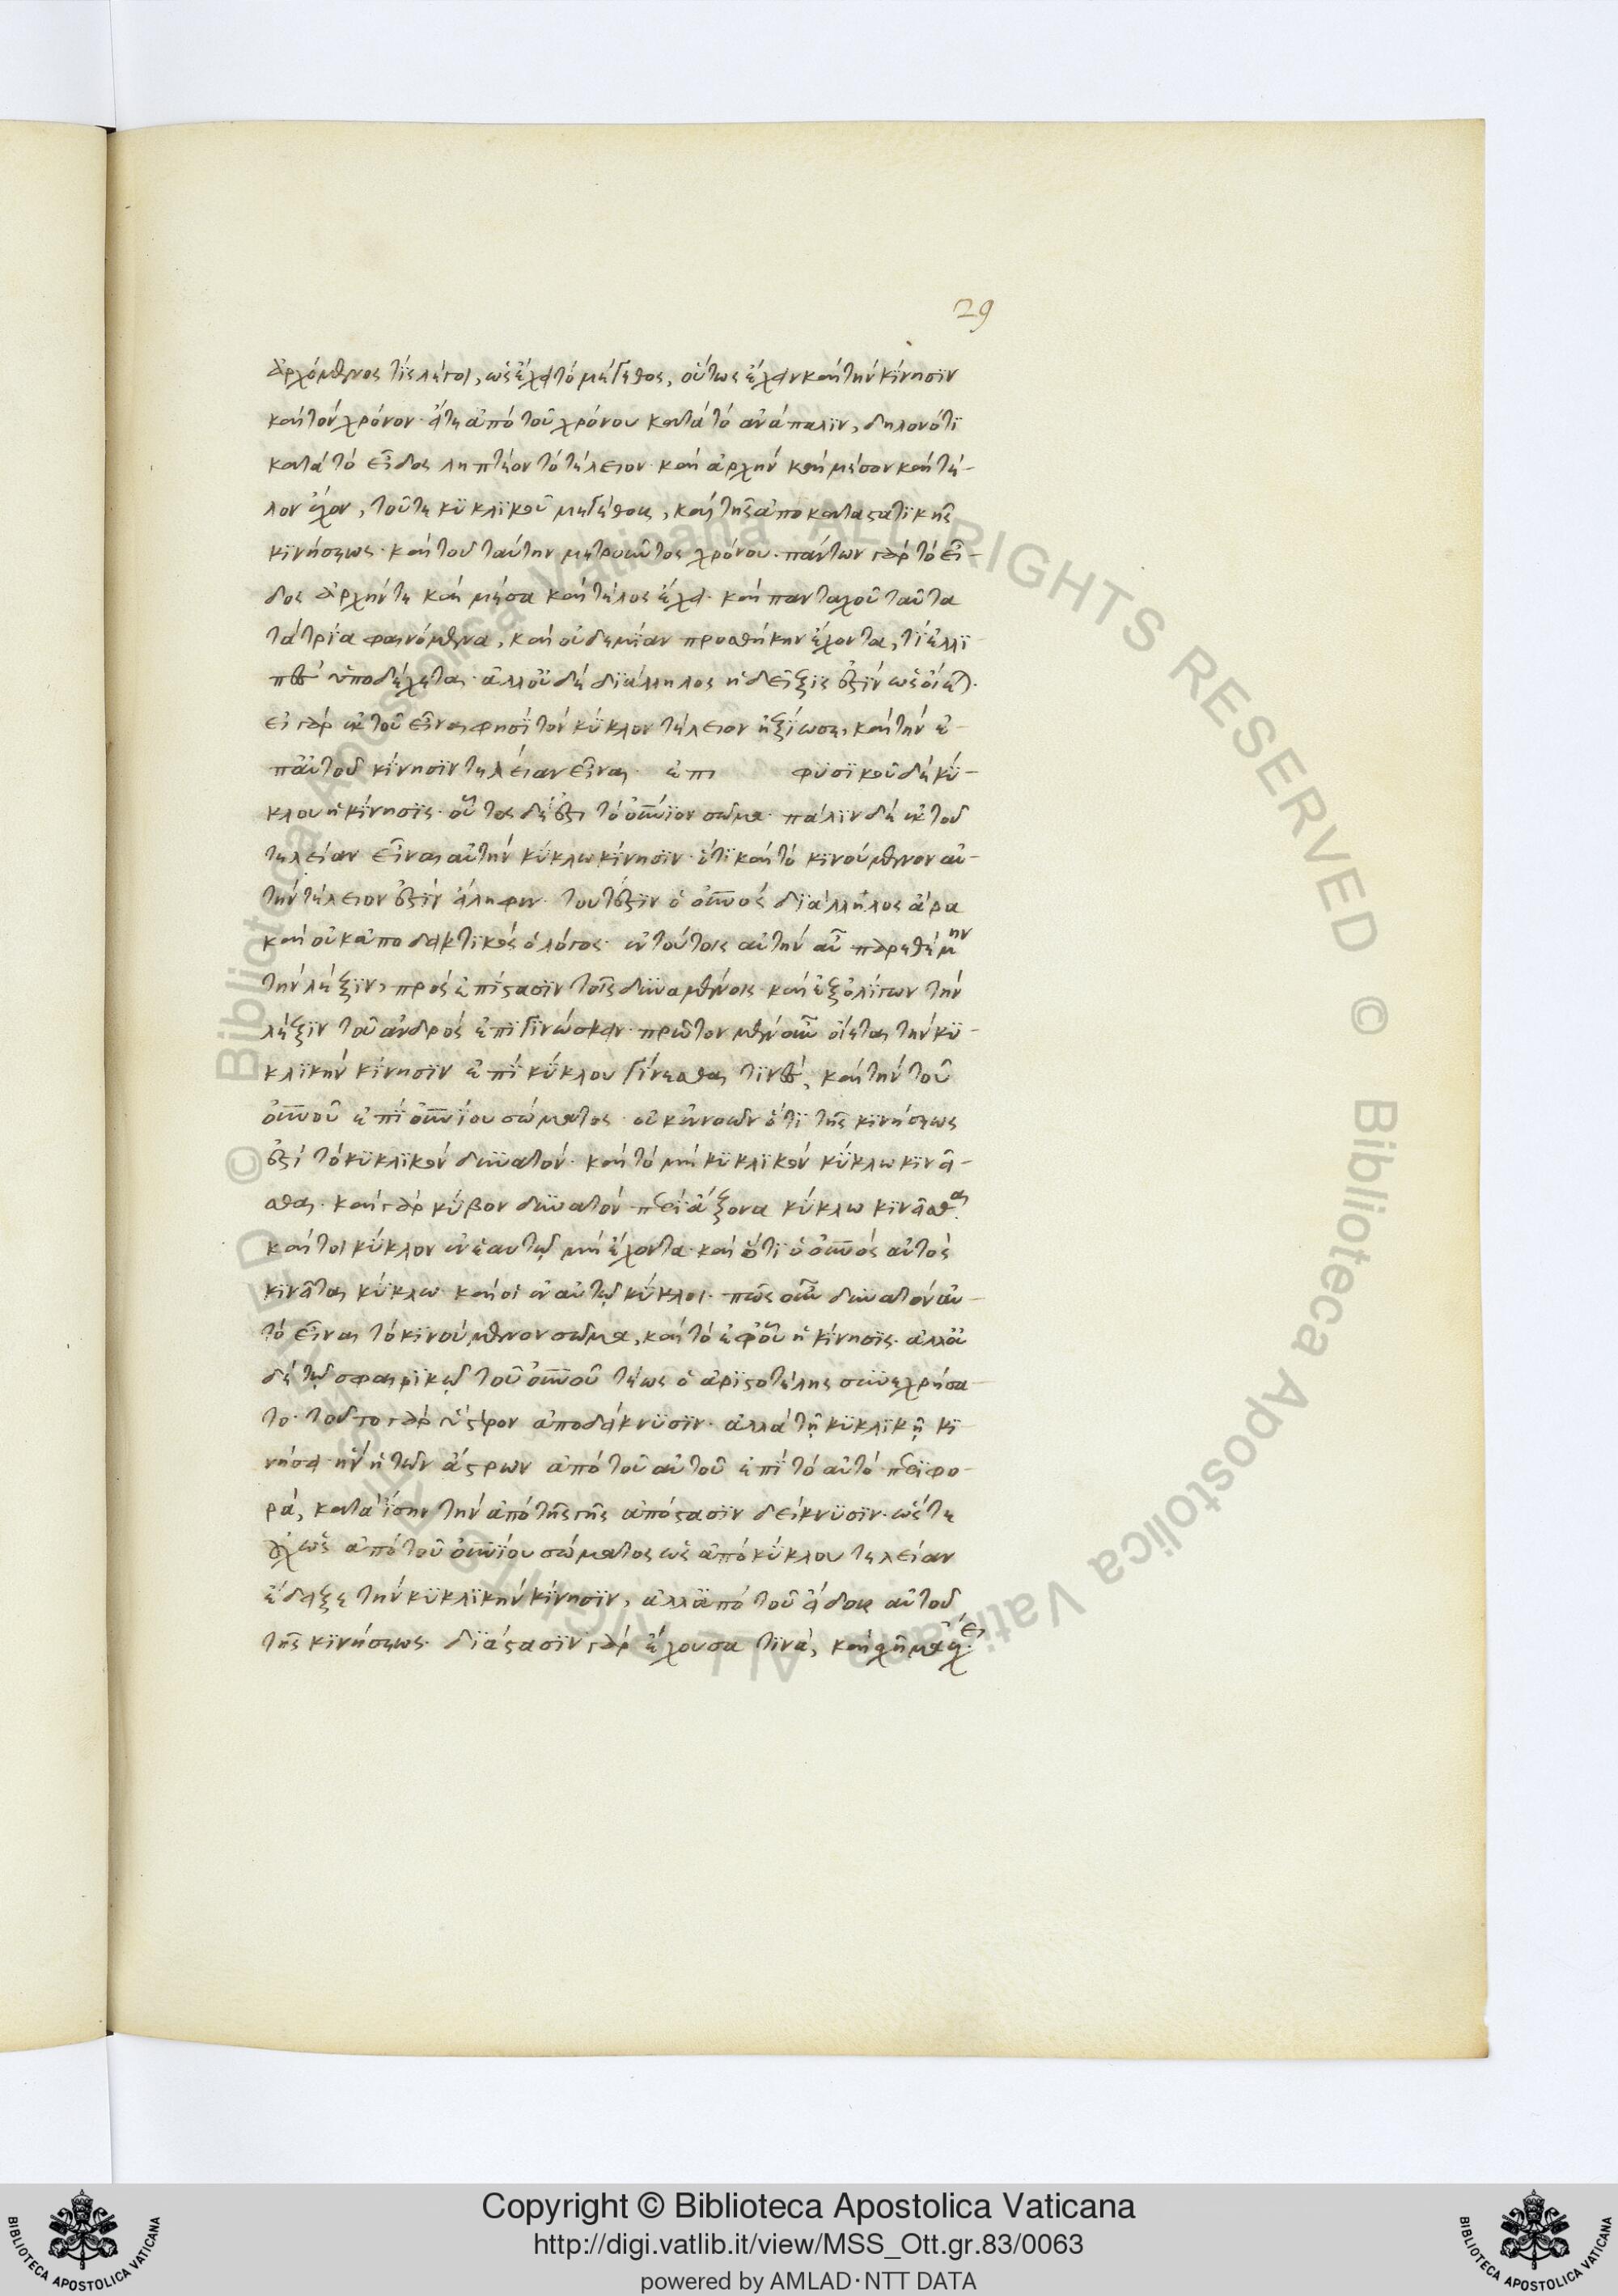 29
ἀρχόμενος τίς λέγοι, ὡς ἔχει τὸ μέγεθος, οὕτως ἔχειν καὶ τὴν κίνησιν
καὶ τὸν χρόνον· εἴτε ἀπὸ τοῦ χρόνου κατὰ τὸ ἀνάπαλιν, δηλονότι
κατὰ τὸ εἶδος ληπτέον τὸ τέλειον καὶ ἀρχὴν καὶ μέσον καὶ τέ-
λον ἔχον, τοῦτε κυκλικοῦ μεγέθους, καὶ τῆς ἀποκαταστατικῆς
κινήσεως· καὶ τοῦ ταύτην μετροῦντος χρόνου· πάντων γὰρ τὸ εἶ-
δος ἀρχήν τε καὶ μέσα καὶ τέλος ἔχει· καὶ πανταχοῦ ταῦτα
τὰ τρία φαινόμενα, καὶ οὐδεμίαν προσθήκην ἔχοντα, τί ἐλλι
πὲς ὑποδέχεται· ἀλλ' οὐδὲ διάλληλος ἡ δεῖξίς ἐστιν ὡς οἴεται·
εἰ γὰρ ἐκ τοῦ εἶναι φησὶ τὸν κύκλον τέλειον ἠξίωσε, καὶ τὴν ἐ-
π' αὐτοῦ κίνησιν τελείαν εἶναι· ἐπι φυσικοῦ δὲ κύ-
κλου ἡ κίνησις· οὗτος δέ ἐστι τὸ οὐράνιον σῶμα· πάλιν δὲ ἐκ τοῦ
τελείαν εἶναι αὐτὴν κύκλω κίνησιν· ὅτι καὶ τὸ κινούμενον αὐ-
τὴν τέλειον ἐστὶν εἴληφεν· τουτέστιν ὁ οὐρανός διάλληλος ἄρα
καὶ οὐκ ἀποδεικτικὸς ὁ λόγος· ἐν τούτοις αὐτὴν αὖ παρεθέμην
τὴν λέξιν, πρὸς ἐπίστασιν τοῖς δυναμένοις καὶ ἐξ ὀλίγων τὴν
λέξιν τοῦ ἀνδρὸς ἐπιγινώσκειν· πρῶτον μὲν οὖν οἴεται τὴν κυ-
κλικὴν κίνησιν ἐπὶ κύκλου γίνεσθαι τινὸς, καὶ τὴν τοῦ
οὐρανοῦ ἐπὶ οὐρανίου σώματος· οὐκ ἐννοῶν ὅτι τῆς κινήσεως
ἐστὶ τὸ κυκλικὸν δυνατόν· καὶ τὸ μὴ κυκλικὸν κύκλω κινεῖ-
σθαι· καὶ γὰρ κύβον δυνατὸν περὶ ἄξονα κύκλω κινεῖσθαι
καὶ τοι κύκλον ἐν ἑαυτῷ μὴ ἔχοντα· καὶ ὅτι ὁ οὐρανὸς αὐτὸς
κινεῖται κύκλω καὶ οἱ ἐν αὐτῷ κύκλοι· πῶς οὖν δυνατὸν αὐ-
τὸ εἶναι τὸ κινούμενον σῶμα, καὶ τὸ ἐφ' οὗ ἡ κίνησις· ἀλλ' οὐ
δὲ τῷ σφαιρικῷ τοῦ οὐρανοῦ τέως ὁ ἀριστοτέλης συνεχρήσα-
το· τοῦτο γὰρ ὕστερον ἀποδείκνυσιν· ἀλλὰ τῇ κυκλικῇ κι
νήσει ἣν ἡ τῶν ἄστρων ἀπὸ τοῦ αὐτοῦ ἐπὶ τὸ αὐτὸ περιφο-
ρά, κατὰ ἴσην τὴν ἀπὸ τῆς γῆς ἀπόστασιν δείκνυσιν· ὥστε
οὐχ ὡς ἀπὸ τοῦ οὐρανίου σώματος ὡς ἀπὸ κύκλου τελείαν
ἔδειξε τὴν κυκλικὴν κίνησιν, ἀλλ' ἀπὸ τοῦ εἴδους αὐτοῦ
τῆς κινήσεως· διάστασιν γὰρ ἔχουσα τινὰ, καὶ σχῆμα ἔχει·
Copyright © Biblioteca Apostolica Vaticana
http://digi.vatlib.it/view/MSS_Ott.gr.83/0063
powered by AMLAD·NTT DATA
BIBLIOTECA APOSTOLICA VATICANA
BIBLIOTECA APOSTOLICA VATICANA
© Biblioteca Apostolica Vaticana ALL RIGHTS RESERVED © Biblioteca Apostolica Vaticana ALL RIGHTS RESERVED